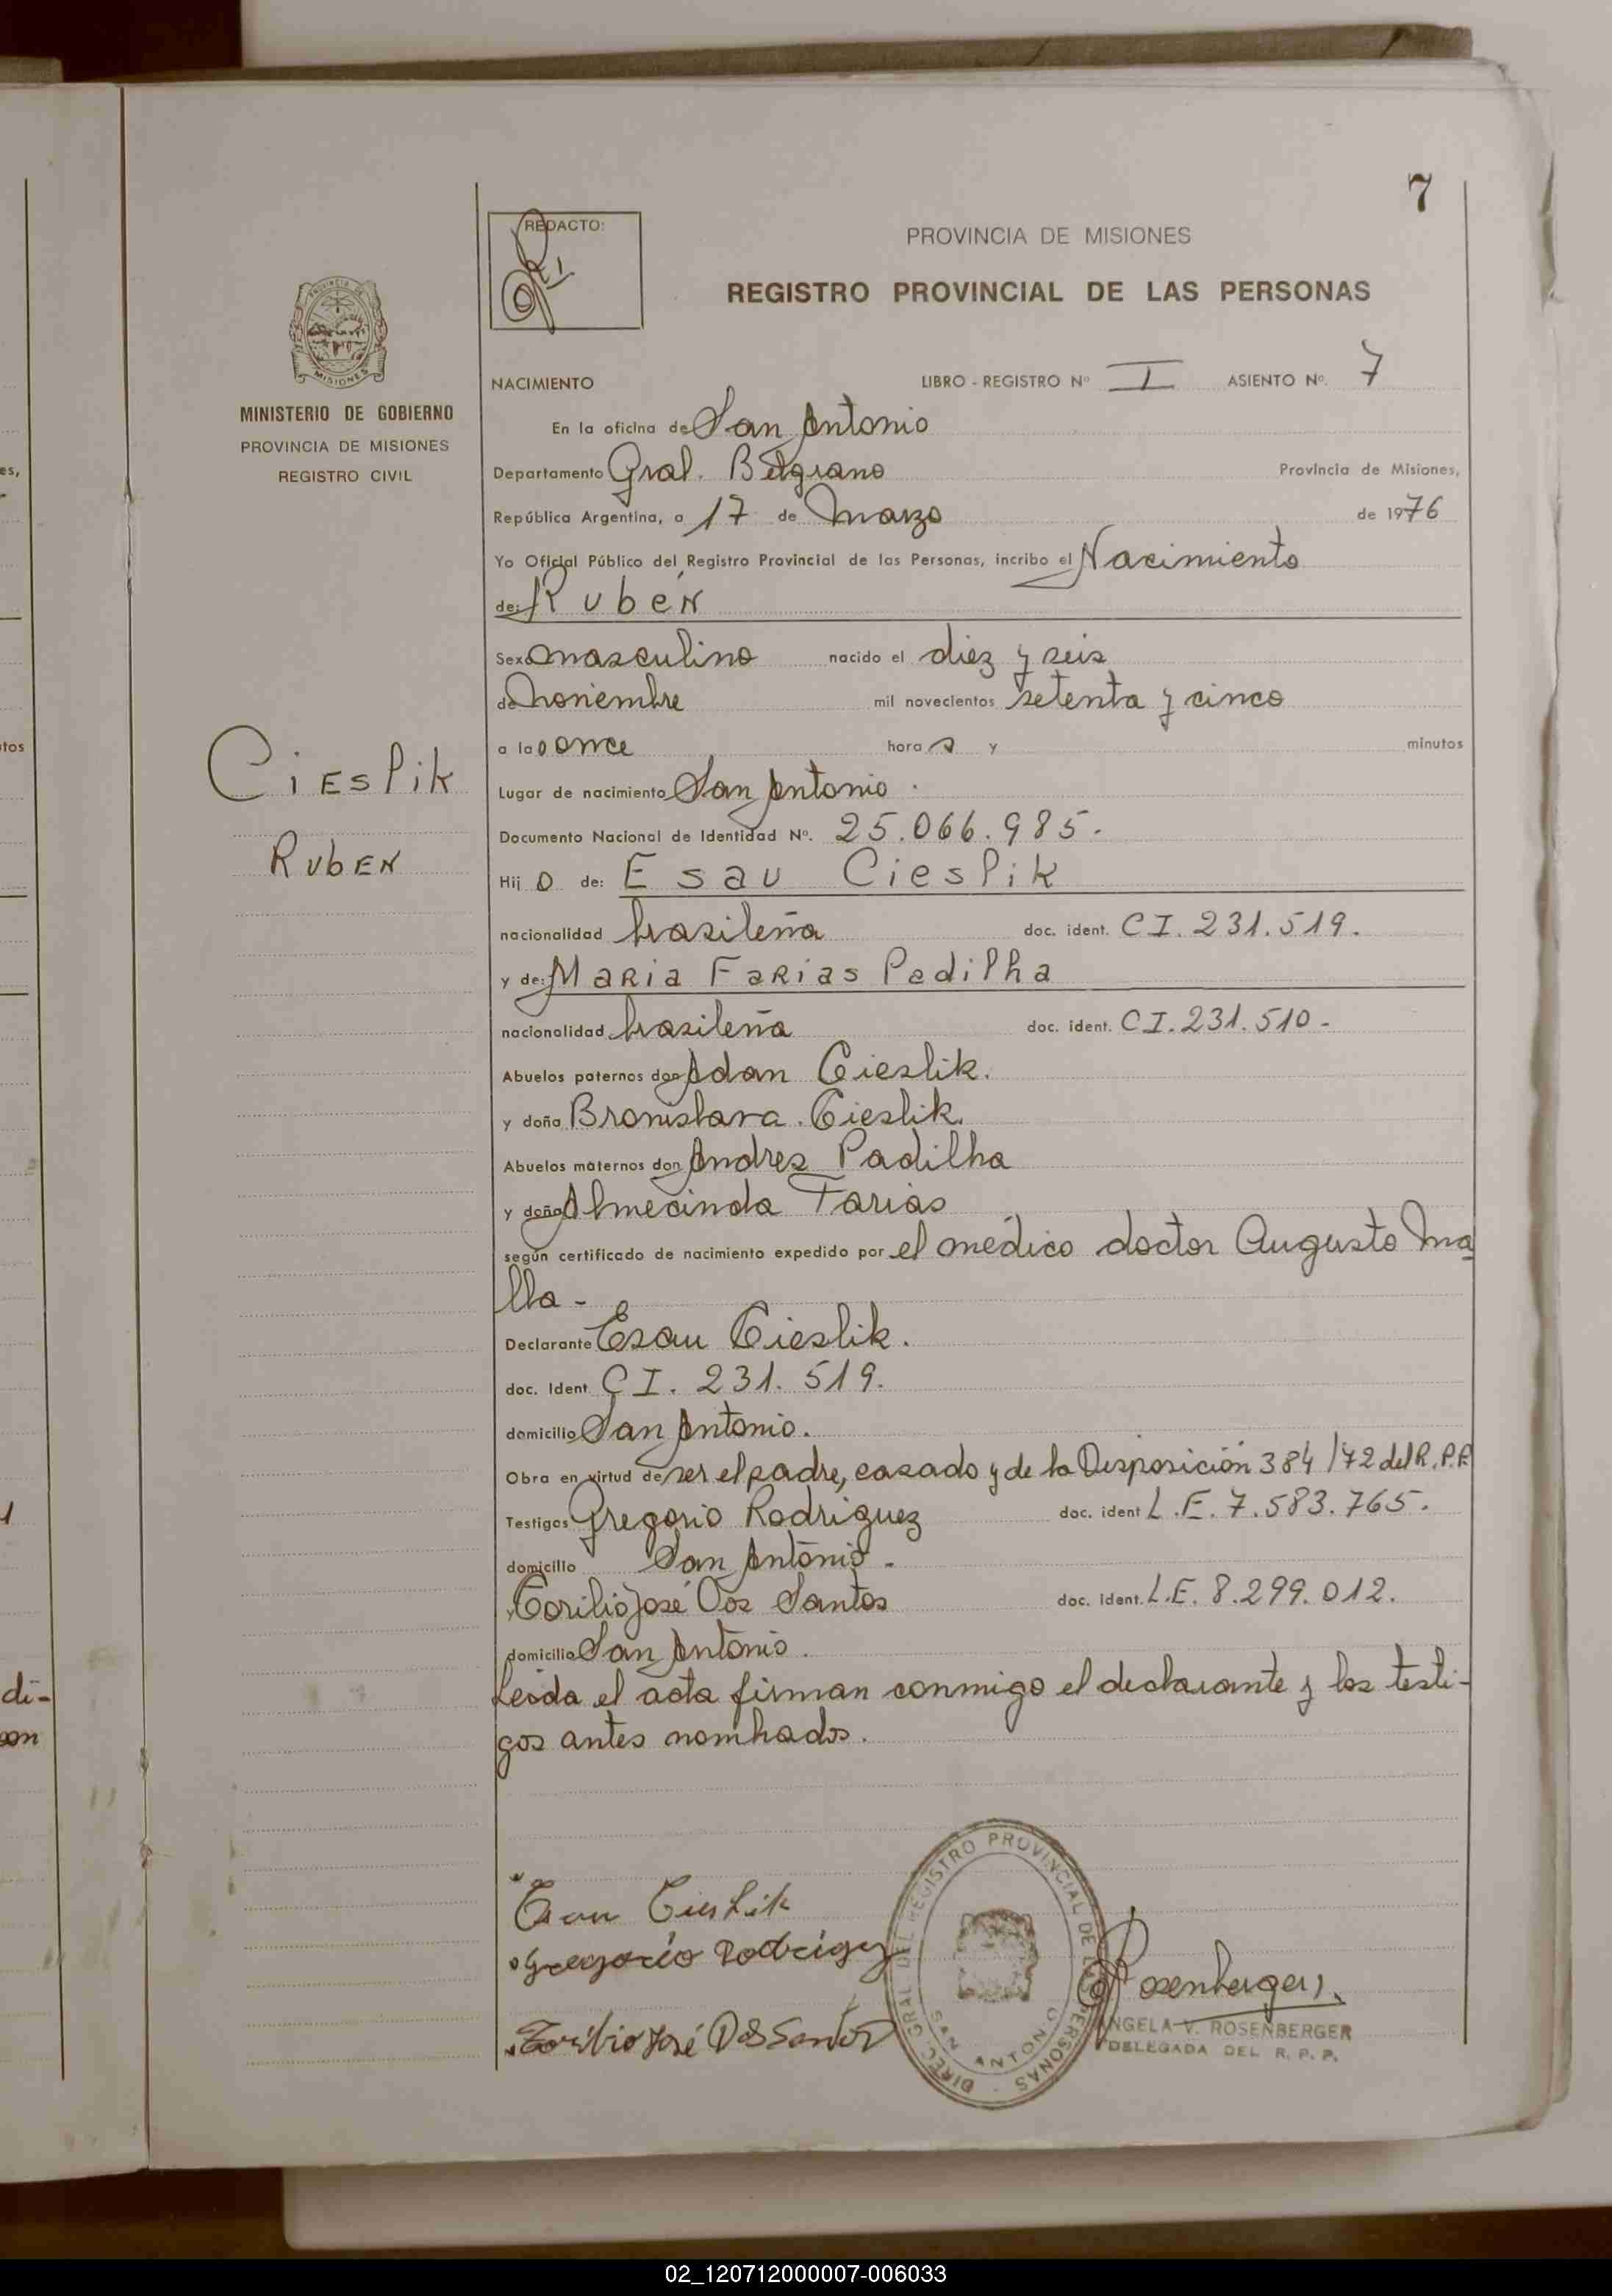 7
REDACTO:
PROVINCIA DE MISIONES
REGISTRO PROVINCIAL DE LAS PERSONAS
PROVINCIA DE
MISIONES
MINISTERIO DE GOBIERNO
PROVINCIA DE MISIONES
REGISTRO CIVIL
NACIMIENTO LIBRO - REGISTRO Nº I ASIENTO Nº. 7
En la oficina de San Antonio
Departamento Gral. Belgrano Provincia de Misiones,
República Argentina, a 17 de Marzo de 1976
Yo Oficial Público del Registro Provincial de las Personas, incribo el Nacimiento
de: Rubén
Sexo masculino nacido el diez y seis
de noviembre mil novecientos setenta y cinco
a las once horas y minutos
Cieslik
Ruben
Lugar de nacimiento San Antonio.
Documento Nacional de Identidad Nº. 25.066.985.
Hijo de: Esau Cieslik
nacionalidad brasileña doc. ident. CI. 231.519.
y de: Maria Farias Padilha
nacionalidad brasileña doc. ident. CI. 231.510-
Abuelos paternos don Adan Cieslik.
y doña Bronislava Cieslik.
Abuelos maternos don Andres Padilha
y doña Almecinda Farias
según certificado de nacimiento expedido por el médico doctor Augusto Ma
lla-
Declarante Esau Cieslik.
doc. Ident CI. 231. 519.
domicilio San Antonio.
Obra en virtud de ser el padre, casado y de la Disposición 384/72 del R.P.P.
Testigos Gregorio Rodriguez doc. ident L.E. 7.583.765.
domicilio San Antonio-
y Toribio José Dos Santos doc. Ident. L.E. 8.299.012.
domicilio San Antonio.
Leída el acta firman conmigo el declarante y los testi-
gos antes nombrados.
Esau Cieslik
Gregorio Rodrigez
Toribio José Dos Santos
DIREC. GRAL. DEL REGISTRO PROVINCIAL DE LAS PERSONAS
SAN ANTONIO
Rosenberger
ANGELA V. ROSENBERGER
DELEGADA DEL R. P. P.
es,
tos
di-
con
02_120712000007-006033